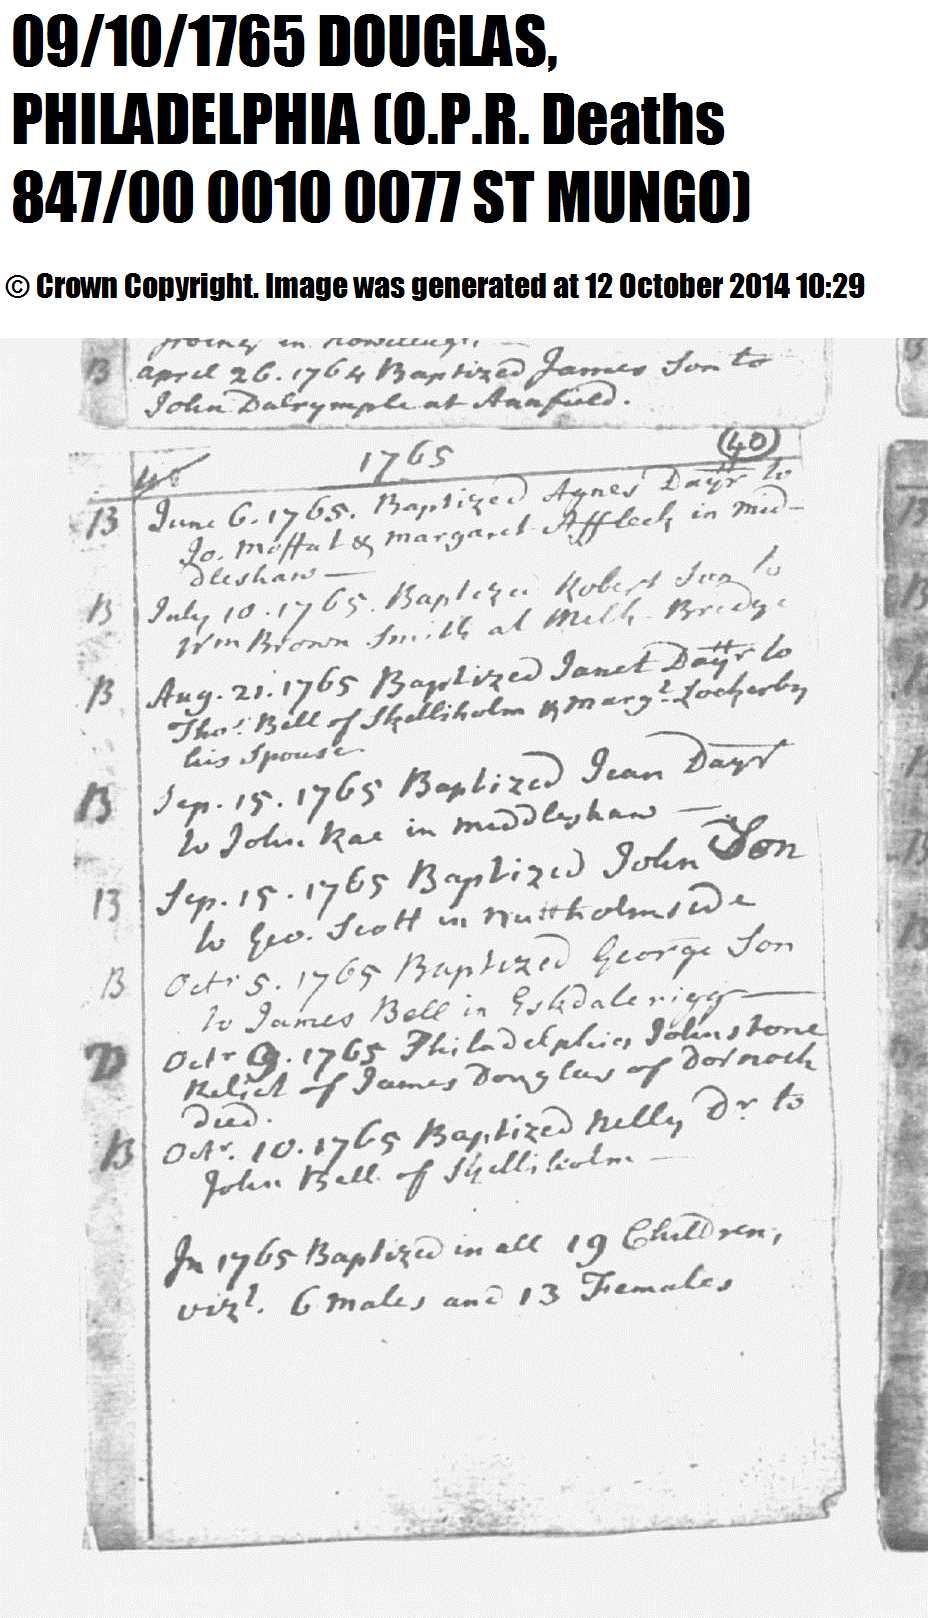 09/10/1765 DOUGLAS,
PHILADELPHIA (O.P.R. Deaths
847/00 0010 0077 ST MUNGO)
© Crown Copyright. Image was generated at 12 October 2014 10:29
in
B april 26. 1764 Baptized James Son to
John Dalrymple at Annfield.
1765 (40)
B June 6. 1765. Baptized Agnes Dayr to
Jo. Moffat & Margaret Affleck in Mid-
dleshaw —
B July 10. 1765. Baptized Robert Son to
Wm Brown Smith at Milk-Bridge
B Aug. 21. 1765 Baptized Janet Dayr to
Thos. Bell of Skellieholm & Margt. Lockerby
his Spouse
B Sep. 15. 1765 Baptized Jean Dayr
to John Rae in Middleshaw —
B Sep. 15. 1765 Baptized John Son
to Geo. Scott in Nuttholmside
B Octr 5. 1765 Baptized George Son
to James Bell in Eskdalerigg —
D Octr 9. 1765 Philadelphia Johnstone
Relict of James Douglas of Dornock
died.
B Octr. 10. 1765 Baptized Nelly Dr to
John Bell of Skellieholm —
In 1765 Baptized in all 19 Children,
vizt. 6 Males and 13 Females